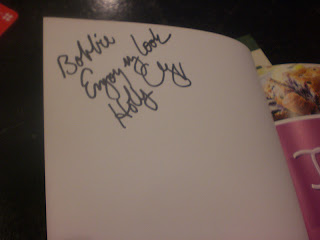 Bobbie
Enjoy my book
Holly